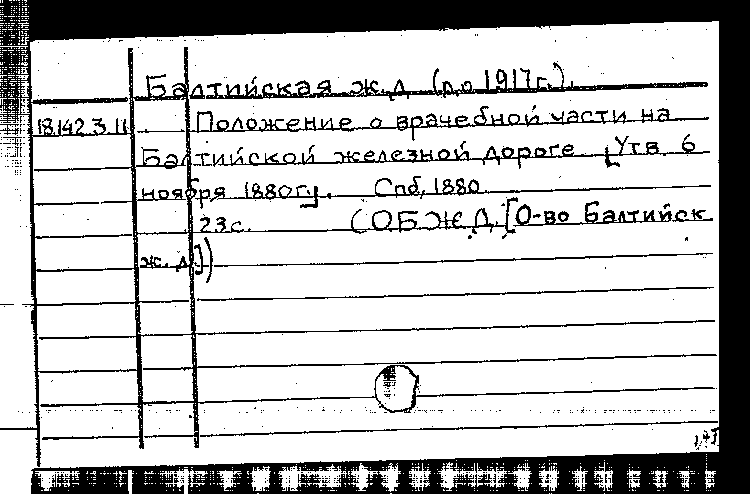 Балтийская ж.д. (до 1917г.).
18.142.3.11. Положение о врачебной части на
Балтийской железной дороге [Утв. 6
ноября 1880г.]. Спб, 1880.
23с. (ОБЖД.[О-во Балтийск.
ж.д.])